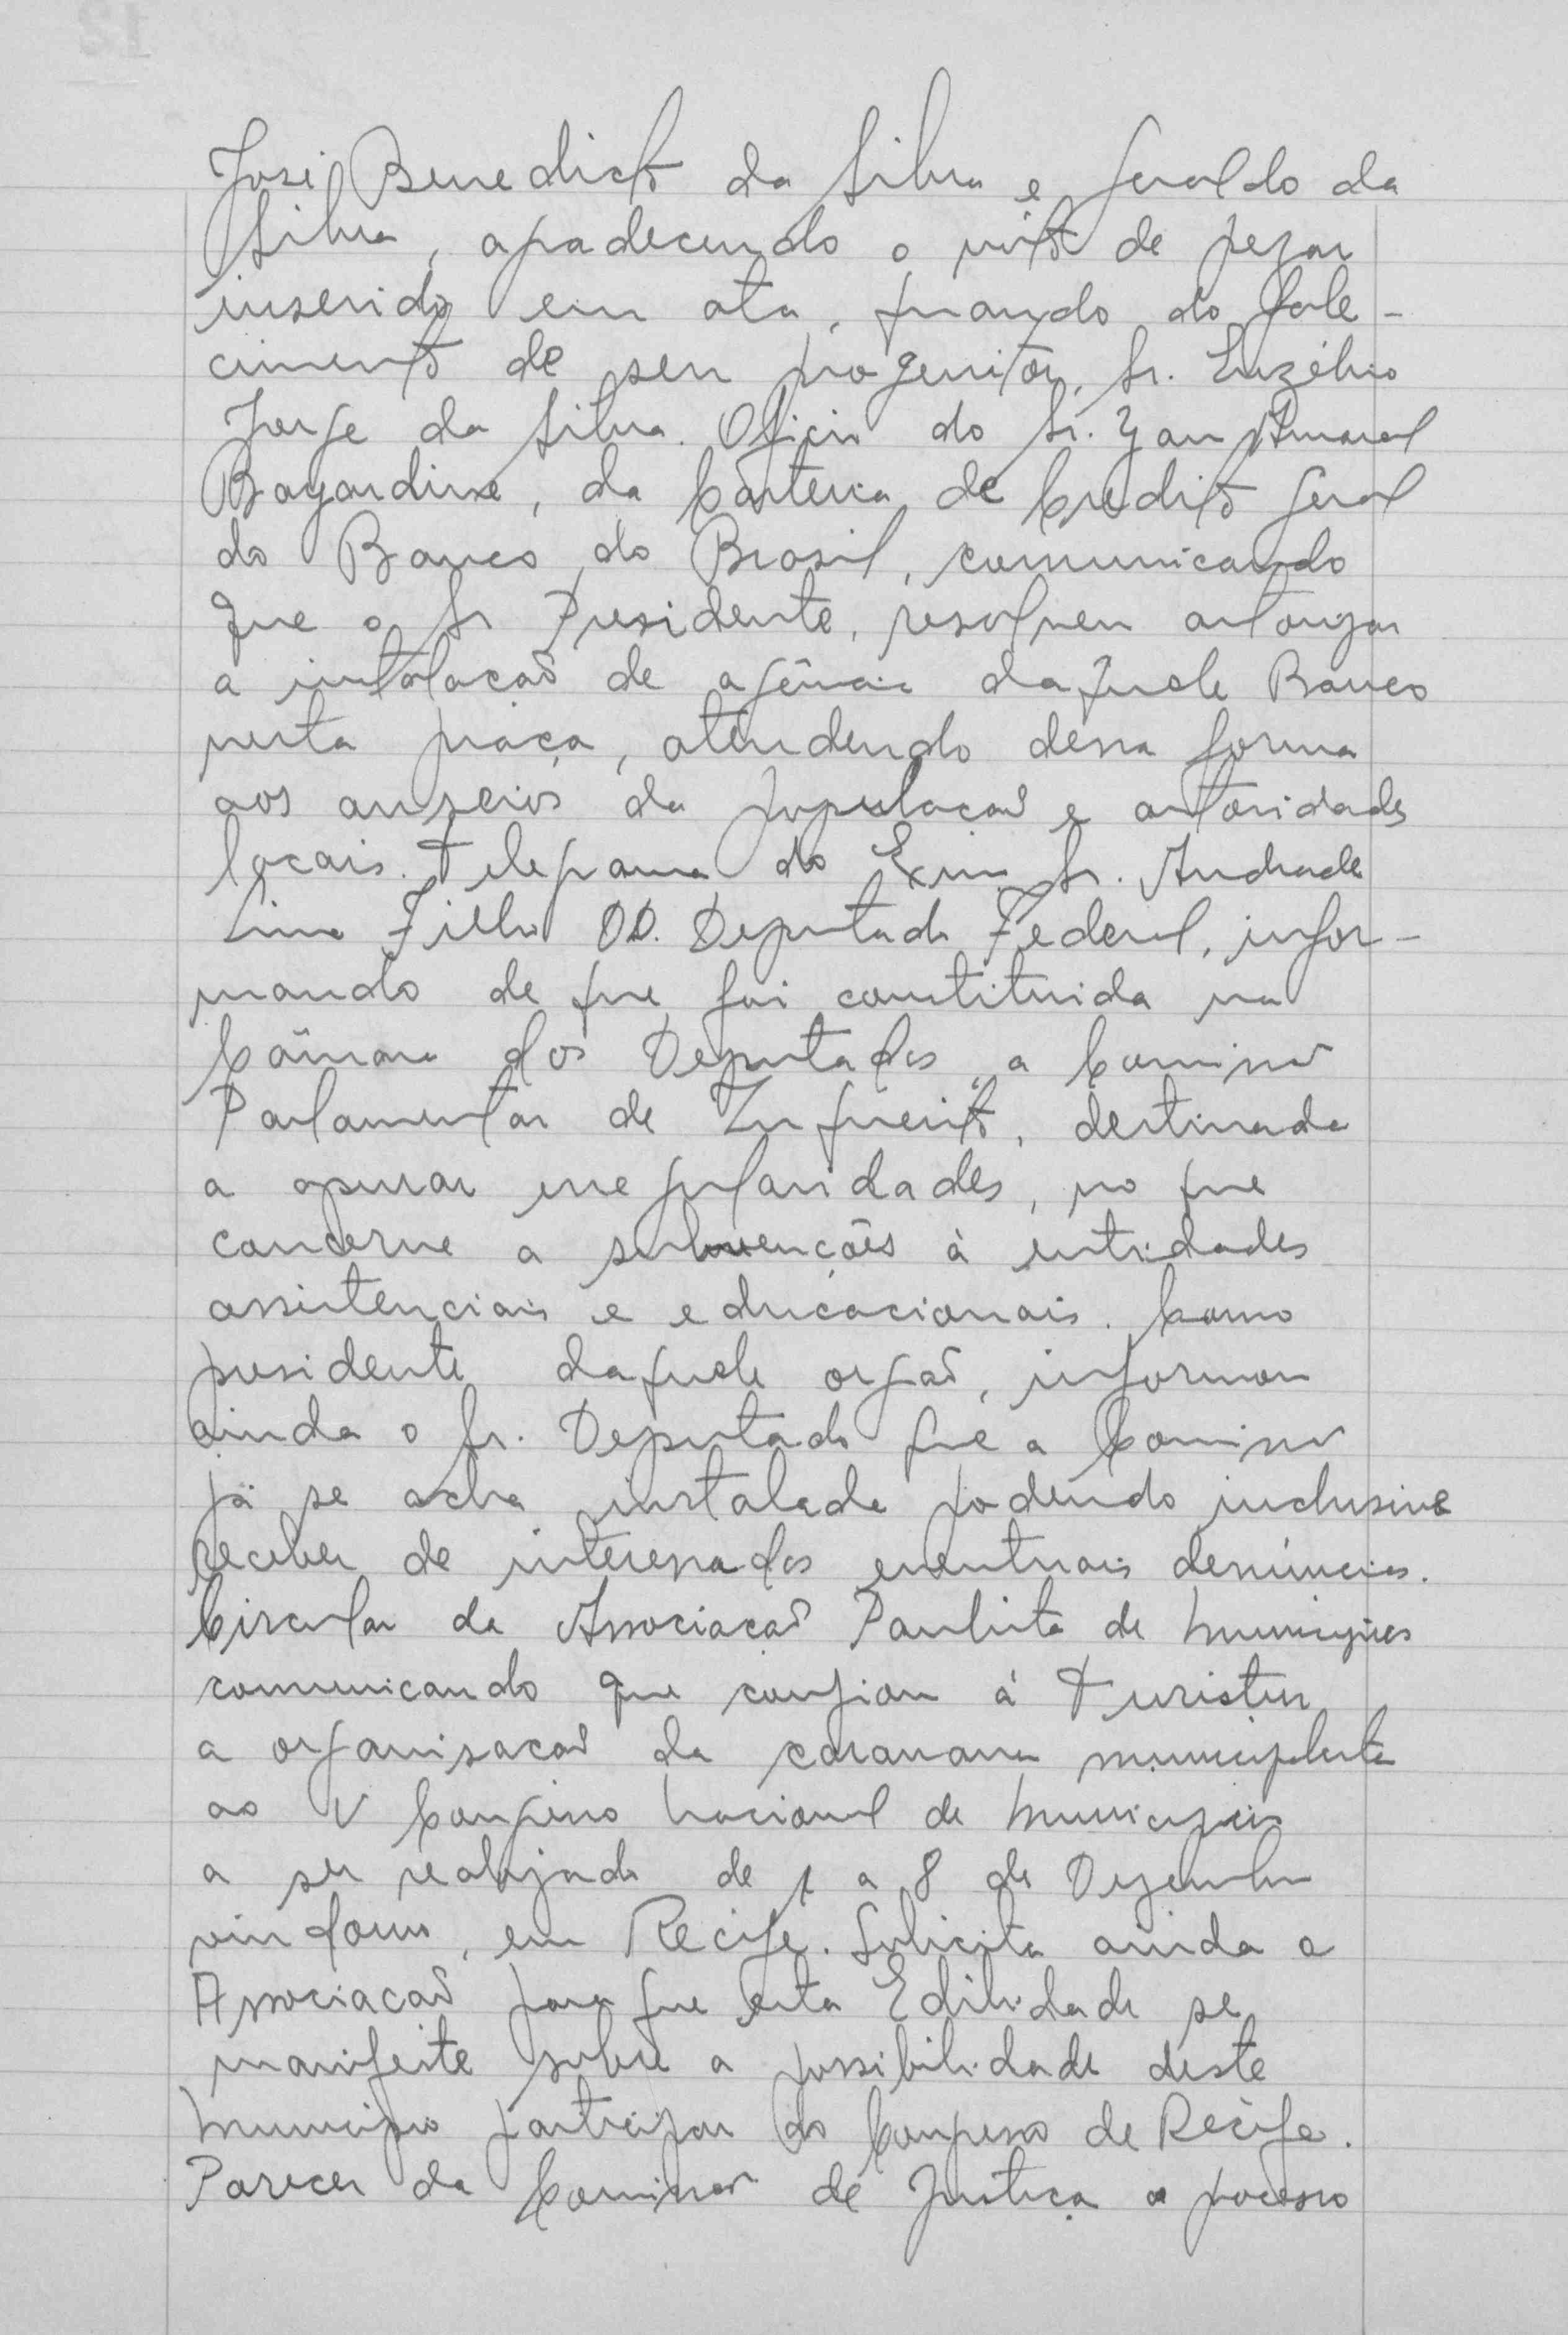 José Benedicto da Silva e Geraldo da
Silva, agradecendo o voto de pezar
inserido em ata, quando do fale-
cimento de seu progenitor, Sr. Euzébio
Jorge da Silva. Oficio do Sr. Yan Amaral
da Carteira de Credito Geral
do Banco do Brasil, comunicando
que o Sr Presidente, resolveu autorizar
a instalacaõ de agência daquele Banco
nesta praça, atendendo dessa forma
aos anseios da populacaõ e autoridades
locais. Telegrama do Exmo Sr. Andrade
Lima Filho DD. Deputado Federal, infor-
mando de que foi constituida na
Câmara dos Deputados a Comissaõ
Parlamentar de Inquerito, destinada
a apurar irregularidades, no que
concerne a subvenções à entidades
assistenciais e educacionais. Como
presidente daquele orgaõ, informou
ainda o Sr. Deputado que a Comissaõ
já se acha instalada podendo inclusive
receber de interessados eventuais denúncias.
Circular da Associacaõ Paulista de Municipios
comunicando que confiou à Turistur
a organisacaõ da caravana municipalista
ao V Congresso Nacional de Municipios
a ser realizado de 1 a 8 de Dezembro
vindouro, em Recife. Solicita ainda a
Associacaõ para que esta Edilidade se
manifeste sobre a possibilidade deste
Municipio participar do Congresso de Recife.
Parecer da Comissaõ de Justiça a processo